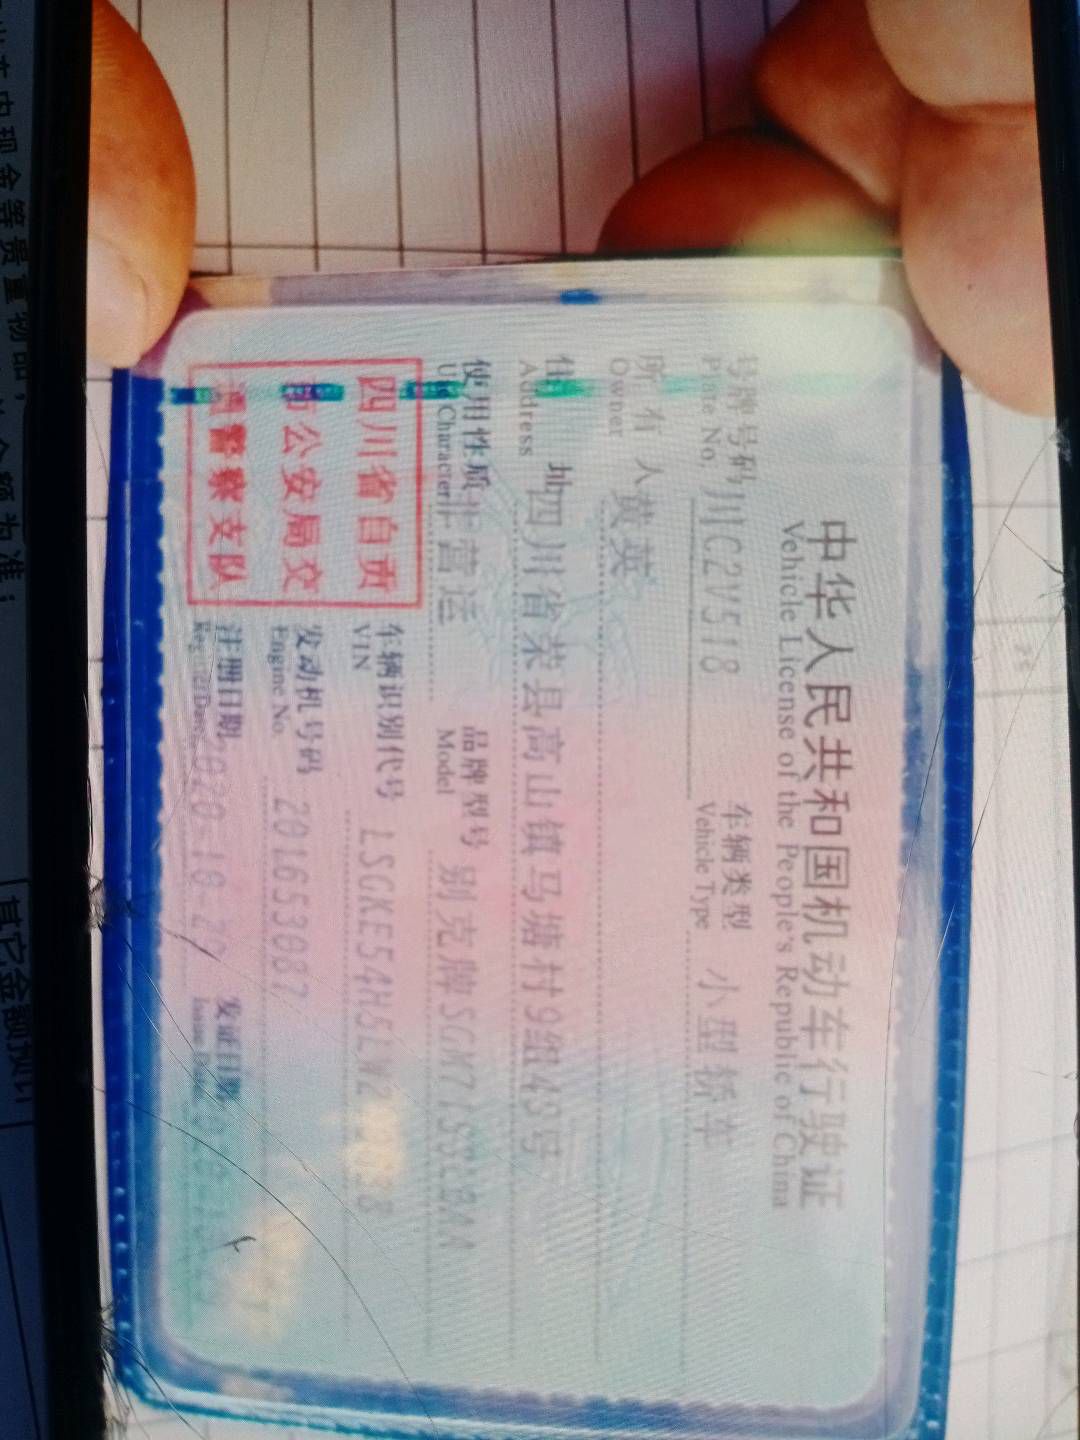 中华人民共和国机动车行驶证
Vehicle License of the People's Republic of China
号牌号码 川C2V518 车辆类型 小型轿车
Plate No. Vehicle Type
所有人 黄英
Owner
住址 四川省荣县高山镇马塘村9组43号
Address
使用性质 非营运 品牌型号 别克牌SGM7152LBAA
Use Character Model
四川省自贡
市公安局交
通警察支队
车辆识别代号 LSGKE54H5LW2
VIN
发动机号码 201653087
Engine No.
注册日期 2020-10-20 发证日期
Register Date Issue Date
现金等贵重物品
金额为准；
其它金额